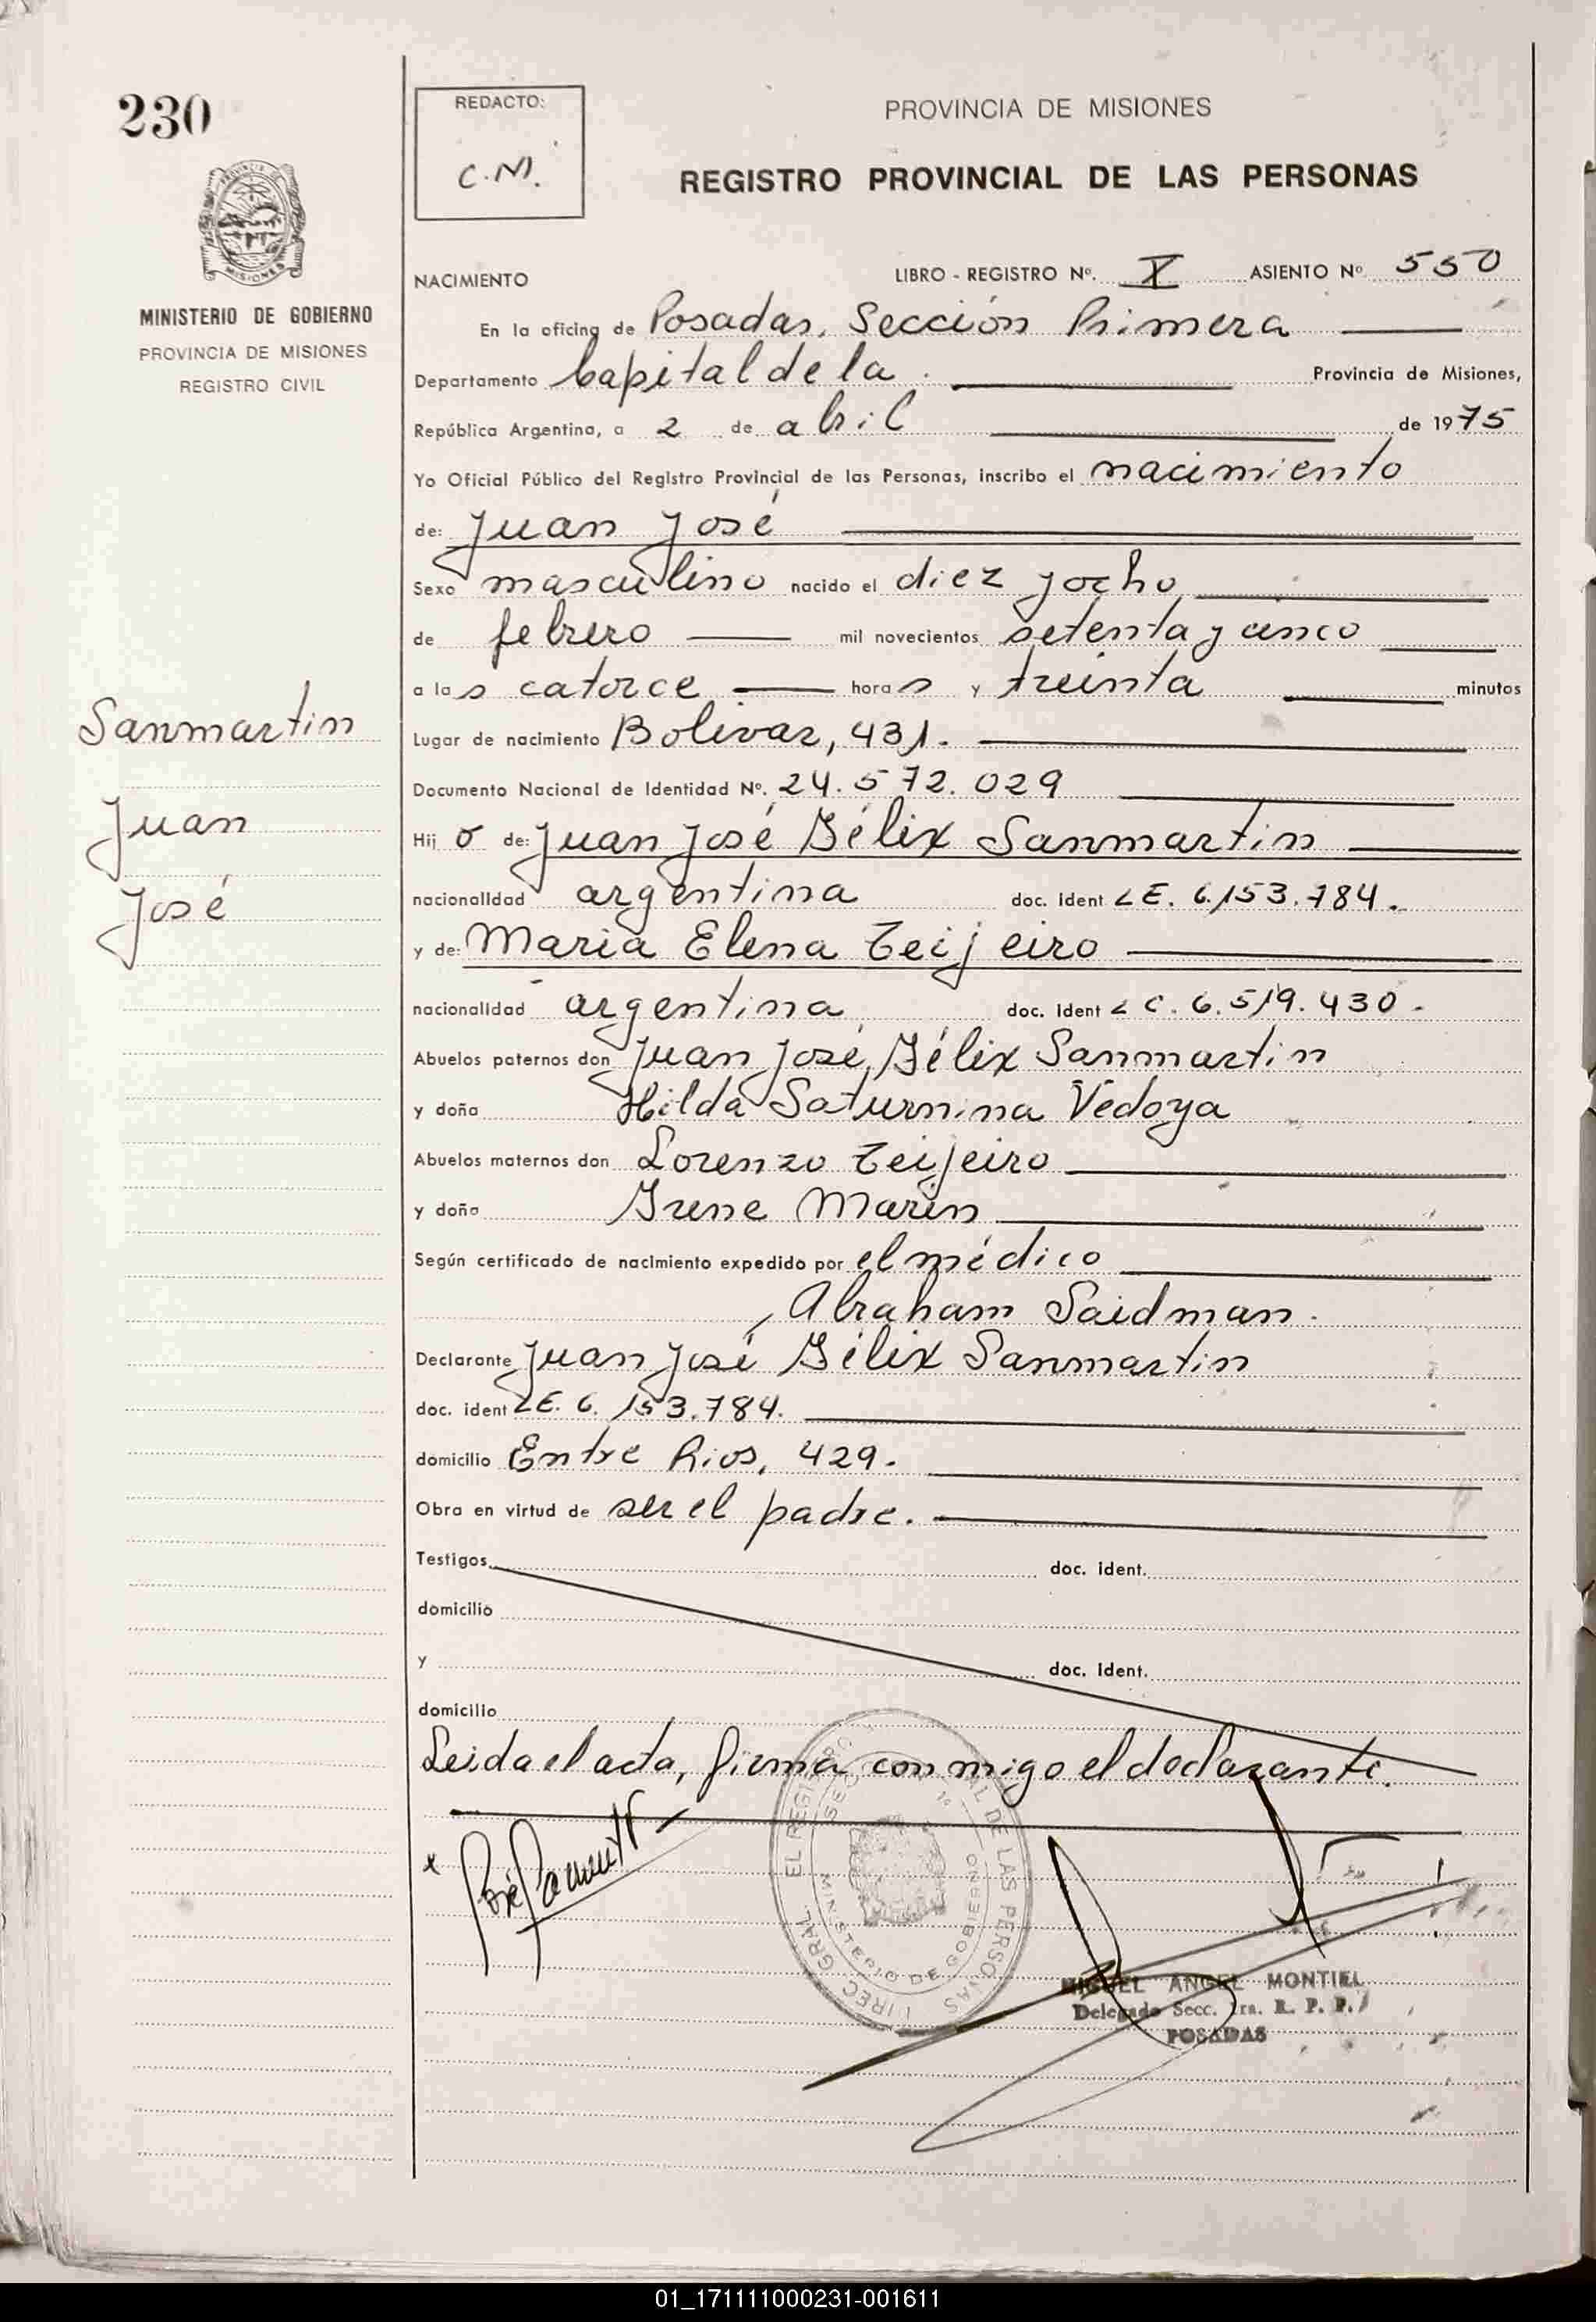 230
REDACTO:
C.M.
PROVINCIA DE MISIONES
REGISTRO PROVINCIAL DE LAS PERSONAS
MISIONES
MINISTERIO DE GOBIERNO
PROVINCIA DE MISIONES
REGISTRO CIVIL
NACIMIENTO LIBRO - REGISTRO Nº. X ASIENTO Nº 550
En la oficina de Posadas, Sección Primera
Departamento Capital de la Provincia de Misiones,
República Argentina, a 2 de abril de 1975
Yo Oficial Público del Registro Provincial de las Personas, inscribo el nacimiento
de: Juan José
Sexo masculino nacido el diez y ocho
de febrero mil novecientos setenta y cinco
a las catorce horas y treinta minutos
Sanmartin
Juan
José
Lugar de nacimiento Bolivar, 431.
Documento Nacional de Identidad Nº. 24.572.029
Hijo de: Juan José Félix Sanmartin
nacionalidad argentina doc. ident LE. 6.153.784.
y de: Maria Elena Teijeiro
nacionalidad argentina doc. ident LC. 6.519.430.
Abuelos paternos don Juan José Félix Sanmartin
y doña Hilda Saturnina Vedoya
Abuelos maternos don Lorenzo Teijeiro
y doña Irene Marin
Según certificado de nacimiento expedido por el médico
Abraham Saidman.
Declarante Juan José Félix Sanmartin
doc. ident LE. 6.153.784.
domicilio Entre Rios, 429.
Obra en virtud de ser el padre.
Testigos doc. ident.
domicilio
y doc. ident.
domicilio
Leida el acta, firma conmigo el declarante.
MINISTERIO DE GOBIERNO
MIGUEL ANGEL MONTIEL
Delegado Secc. 1ra. R. P. P.
POSADAS
01_171111000231-001611